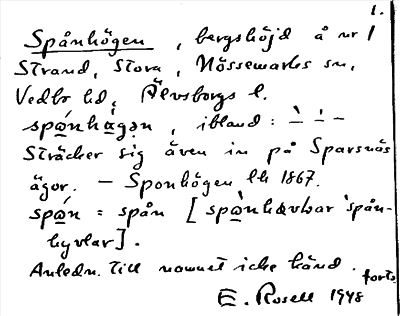 1.
Spånhögen, bergshöjd å nr 1
Strand, Stora, Nössemarks sn,
Vedbo hd, Älvsborgs l.
ibland: – –́ –
Sträcker sig även in på Sparsnäs
ägor. – Sponhögen lk 1867.
= spån [ 'spån-
hyvlar].
Anledn. till namnet icke känd.
forts.
E. Rosell 1948